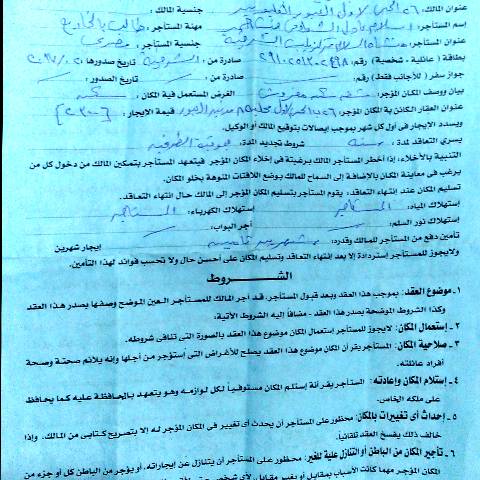 عنوان المالك: ٢٦ الحى الأول
إسم المستأجر: جنسية المالك:
عنوان المستأجر: الشرقية مهنة المستأجر: طالب بالخارج
بطاقة (عائلية - شخصية) رقم: صادرة من: الشرقية جنسية المستأجر: مصرى
جواز سفر (للأجانب فقط) رقم: صادرة من: تاريخ صدورها:
بيان ووصف المكان المؤجر: شقة سكنية مفروش الغرض المستعمل فيه المكان: سكنه تاريخ الصدور:
عنوان العقار الكائن به المكان المؤجر: ٢٦ الحى الأول قيمة الايجار:
ويسدد الايجار فى أول كل شهر بموجب إيصالات بتوقيع المالك أو الوكيل.
يسرى التعاقد لمدة: سنة شروط تجديد المدة: موافقة الطرفين
التنبية بالأخلاء: إذا أخطر المستأجر المالك برغبتة فى إخلاء المكان المؤجر فيتعهد المستأجر بتمكين المالك من دخول كل من
يرغب فى معاينة المكان بالاضافة إلى السماح للمالك بوضع اللافتات المنوهة بخلو المكان.
تسليم المكان عند إنتهاء التعاقد: يقوم المستأجر بتسليم المكان المؤجر إلى المالك حال انتهاء التعاقد.
إستهلاك المياه: المستأجر إستهلاك الكهرباء: المستأجر
إستهلاك نور السلم: أجر البواب:
تأمين دفع من المستأجر للمالك وقدره: إيجار شهرين
ولايجوز للمستأجر إستردادة إلا بعد إنتهاء التعاقد وتسليم المكان على أحسن حال ولا تحسب فوائد لهذا التأمين.
الشروط
١ - موضوع العقد: بموجب هذا العقد وبعد قبول المستأجر، قد أجر المالك للمستأجر العين الموضح وصفها بصدر هذا العقد
وكذا الشروط الموضحة بصدر هذا العقد - مضافاً إليه الشروط الآتية:
٢ - إستعمال المكان: لايجوز للمستأجر إستعمال المكان موضوع هذا العقد بالصورة التى تنافى شروطه.
٣ - صلاحية المكان: المستأجر يقر أن المكان موضوع هذا العقد يصلح للأغراض التى إستؤجر من أجلها وإنه يلائم صحتة وصحة
أفراد عائلته.
٤ - إستلام المكان وإعادته: المستأجر يقر أنة إستلم المكان مستوفياً لكل لوازمه وهو يتعهد بالمحافظة عليه كما يحافظ
على ملكه الخاص.
٥ - إحداث أى تغييرات بالمكان: محظور على المستأجر أن يحدث أى تغيير فى المكان المؤجر له إلا بتصريح كتابى من المالك. وإذا
خالف ذلك يفسخ العقد تلقائياً.
٦ - تأجير المكان من الباطن أو التنازل علية للغير: محظور على المستأجر أن يتنازل عن إيجاراته، أو يؤجر من الباطن كل أو جزء من
المكان المؤجر مهما كانت الأسباب بمقابل أو بغير مقابل